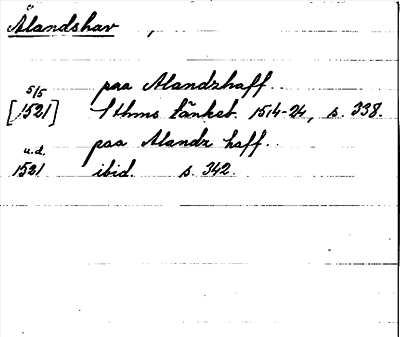 Ålandshav ,
5/5 paa Alandzhaff.
[1521] Sthms tänkeb. 1514-24, s. 338.
u.d. paa Alandz haff.
1521 ibid. s. 342.